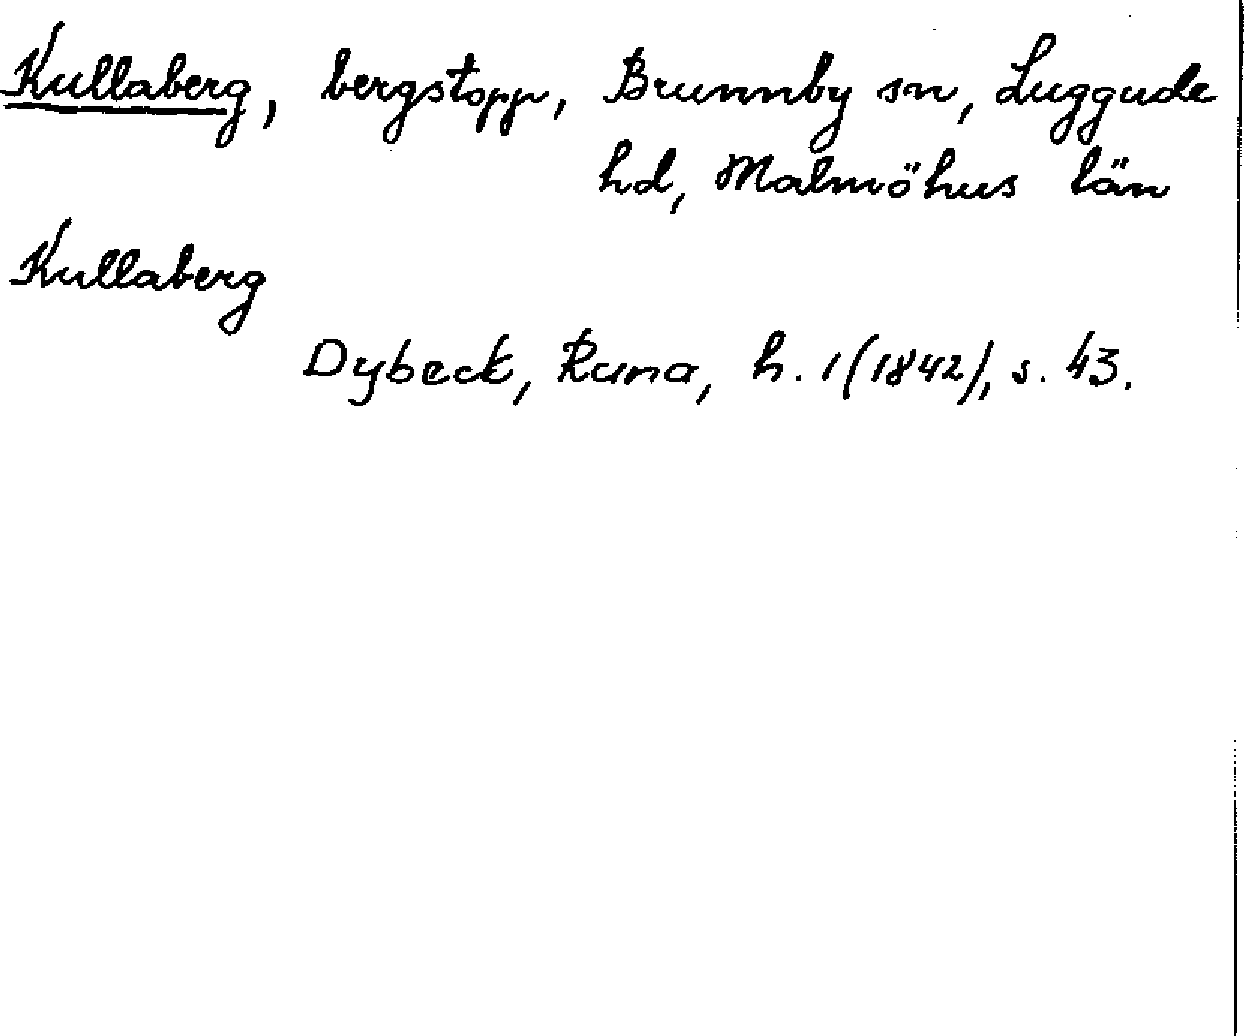 Kullaberg, bergstopp, Brunnby sn, Luggude
hd, Malmöhus län
Kullaberg
Dybeck, Runa, h. 1 (1842), s. 43.